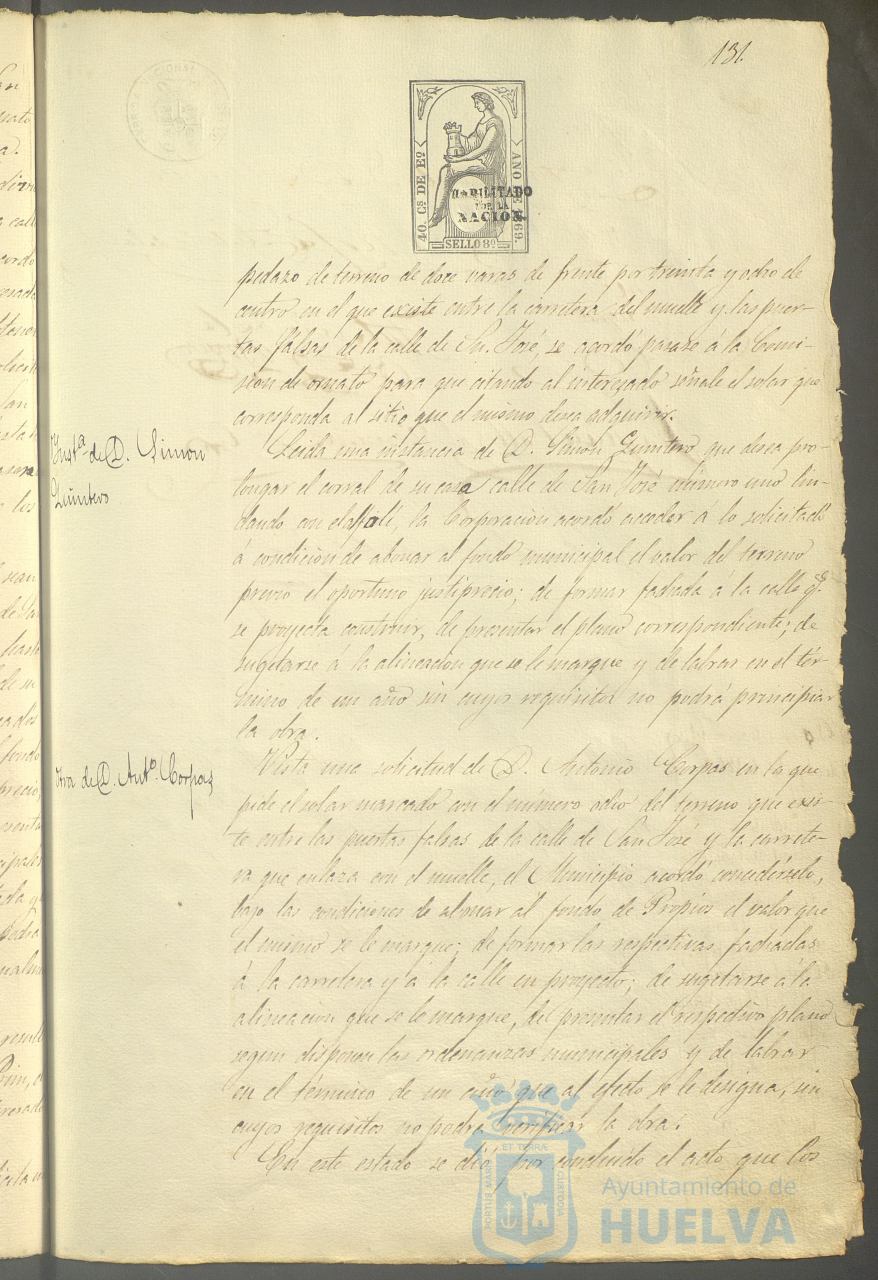 131.
40. Cs DE Eo
AÑO DE 1869.
HABILITADO
POR LA
NACION.
SELLO 8º
pedazo de terreno de doce varas de frente por treinta y ocho de
centro en el que existe entre la carretera del muelle y las puer-
tas falsas de la calle de Sn. José, se acordó pasase á la Comi-
sion de ornato para que citando al interesado señale el solar que
corresponda al sitio que el mismo desea adquirir.
Instª de D. Simon
Quintero
Leida una instancia de D. Simón Quintero que desea pro-
longar el corral de su casa calle de San José número uno lin-
dando con el, la Corporacion acordó acceder á lo solicitado
á condicion de abonar al fondo municipal el valor del terreno
previo el oportuno justiprecio; de formar fachada á la calle q.e
se proyecta construir, de presentar el plano correspondiente; de
sugetarse á la alineacion que se le marque y de labrar en el tér-
mino de un año sin cuyos requisitos no podrá principiar
la obra.
Otra de D. Antº. Corpas
Vista una solicitud de D. Antonio Corpas en la que
pide el solar marcado con el numero ocho del terreno que exis-
te entre las puertas falsas de la calle de San José y la carrete-
ra que enlaza con el muelle, el Municipio acordó concedérselo,
bajo las condiciones de abonar al fondo de Propios el valor que
el mismo se le marque; de formar las respectivas fachadas
á la carretera y á la calle en proyecto; de sugetarse á la
alineacion que se le marque, de presentar el respectivo plano
segun disponen las ordenanzas municipales y de labrar
en el término de un año que al efecto se le designa, sin
cuyos requisitos no podrá verificar la obra.
En este estado se dió por concluido el acto que los
PORTUS MARIS ET TERRÆ CUSTODIA
Ayuntamiento de
HUELVA